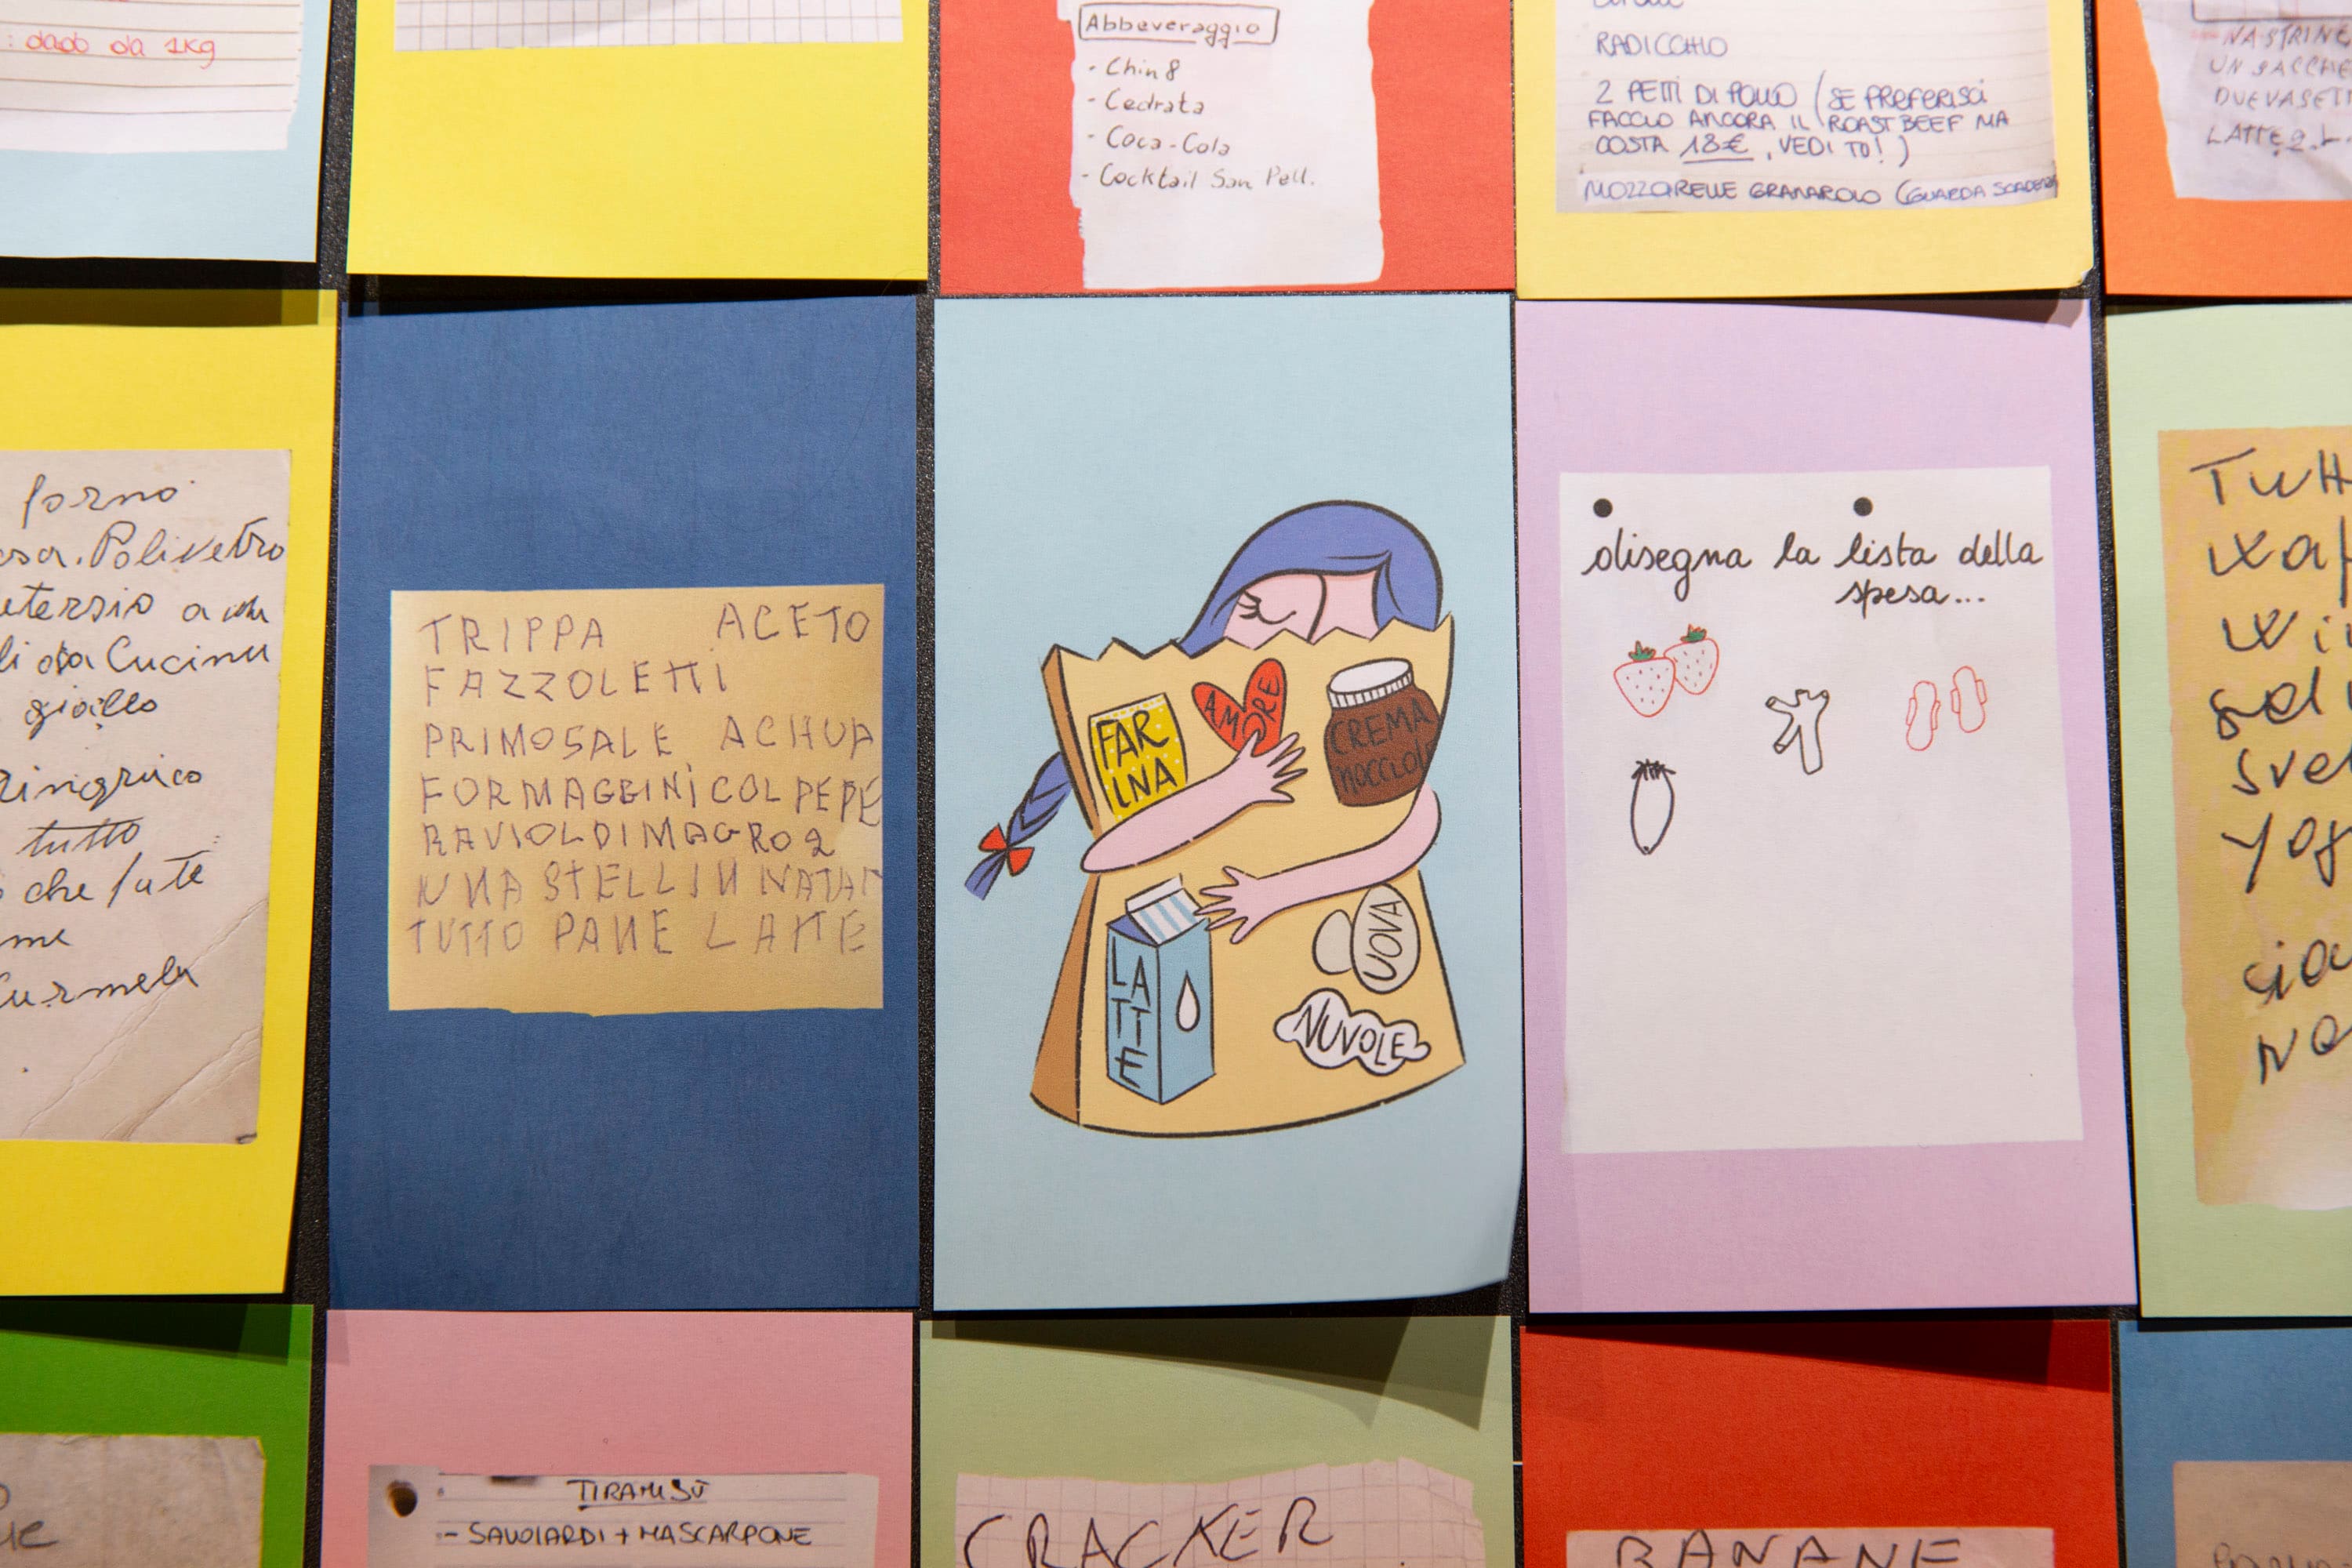 : dado da 1Kg
Abbeveraggio
- Chin8
- Cedrata
- Coca-Cola
- Cocktail San Pell.
RADICCHIO
2 PETTI DI POLLO (SE PREFERISCI
FACCIO ANCORA IL ROAST BEEF MA
COSTA 18€, VEDI TU!)
MOZZARELLE GRANAROLO (GUARDA SCADENZA
UN SACCHE
DUE VASETT
LATTE 2 L.
forno
Polivetro
a
Cucina
giallo
tutto
che fate
me
Carmela
TRIPPA ACETO
FAZZOLETTI
PRIMOSALE ACHUA
FORMAGGINI COL PEPE
RAVIOLDIMAGRO 2
TUTTO PANE LATTE
FAR
INA
AMORE
CREMA
NOCCIOL
LA
TT
E
UOVA
NUVOLE
disegna la lista della
spesa...
TUTT
wi
sve
yog
sia
no
TIRAMISÙ
- SAVOIARDI + MASCARPONE
CRACKER
BANANE